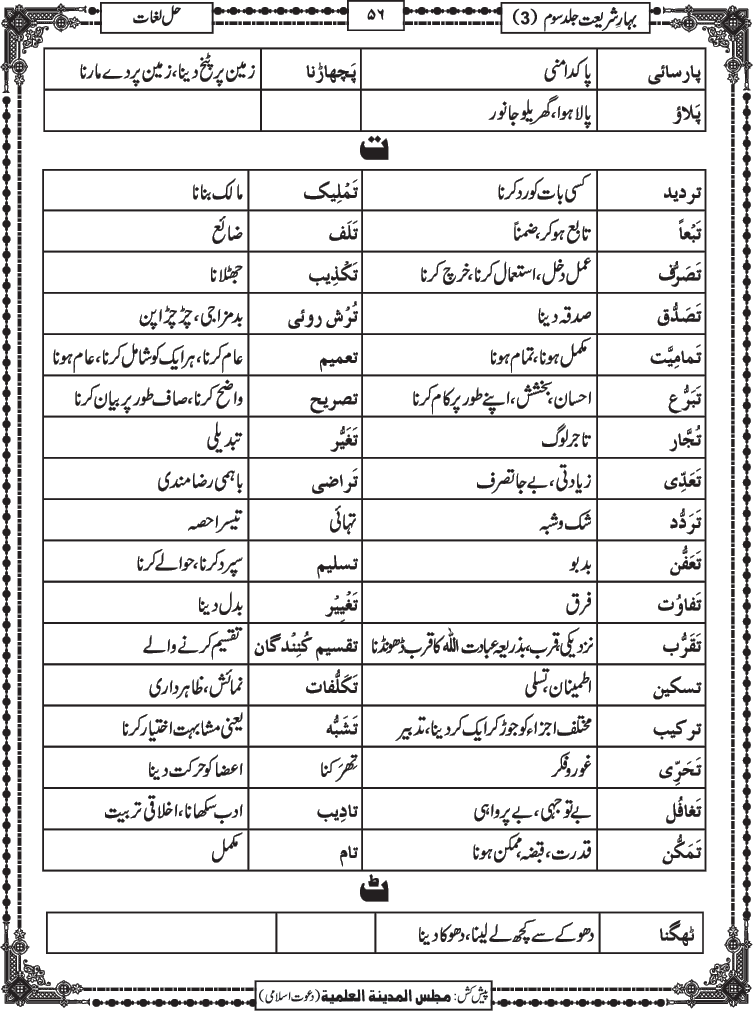 بہار شریعت جلد سوم (3) ۵۶ حل لغات
پارسائی پاکدامنی پَچھاڑنا زمین پر پٹخ دینا، زمین پر دے مارنا
پَلاؤ پالا ہوا، گھریلو جانور
ت
تردید کسی بات کو رد کرنا تَمْلِیک مالک بنانا
تَبْعاً تابع ہوکر، ضمناً تَلَف ضائع
تَصَرُّف عمل دخل، استعمال کرنا، خرچ کرنا تَکْذِیب جھٹلانا
تَصَدُّق صدقہ دینا تُرْش روئی بدمزاجی، چڑچڑاپن
تَمامِیَّت مکمل ہونا، تمام ہونا تعمیم عام کرنا، ہر ایک کو شامل کرنا، عام ہونا
تَبَرُّع احسان، بخشش، اپنے طور پر کام کرنا تصریح واضح کرنا، صاف طور پر بیان کرنا
تُجَّار تاجر لوگ تَغَیُّر تبدیلی
تَعَدِّی زیادتی، بے جا تصرف تَراضی باہمی رضامندی
تَرَدُّد شک وشبہ تہائی تیسرا حصہ
تَعَفُّن بدبو تسلیم سپرد کرنا، حوالے کرنا
تَفاوُت فرق تَغْیِیْر بدل دینا
تَقَرُّب نزدیکی، قرب، بذریعہ عبادت اللہ کا قرب ڈھونڈنا تقسیم کُنِنْدگان تقسیم کرنے والے
تسکین اطمینان، تسلی تَکَلُّفات نمائش، ظاہرداری
ترکیب مختلف اجزاء کو جوڑ کر ایک کر دینا، تدبیر تَشَبُّہ یعنی مشابہت اختیار کرنا
تَحَرِّی غور وفکر تِھرَکنا اعضا کو حرکت دینا
تَغافُل بے توجہی، بے پرواہی تادِیب ادب سکھانا، اخلاقی تربیت
تَمَکُّن قدرت، قبضہ، ممکن ہونا تام مکمل
ٹ
ٹھگنا دھوکے سے کچھ لے لینا، دھوکا دینا
پیش کش: مجلس المدینۃ العلمیۃ (دعوت اسلامی)